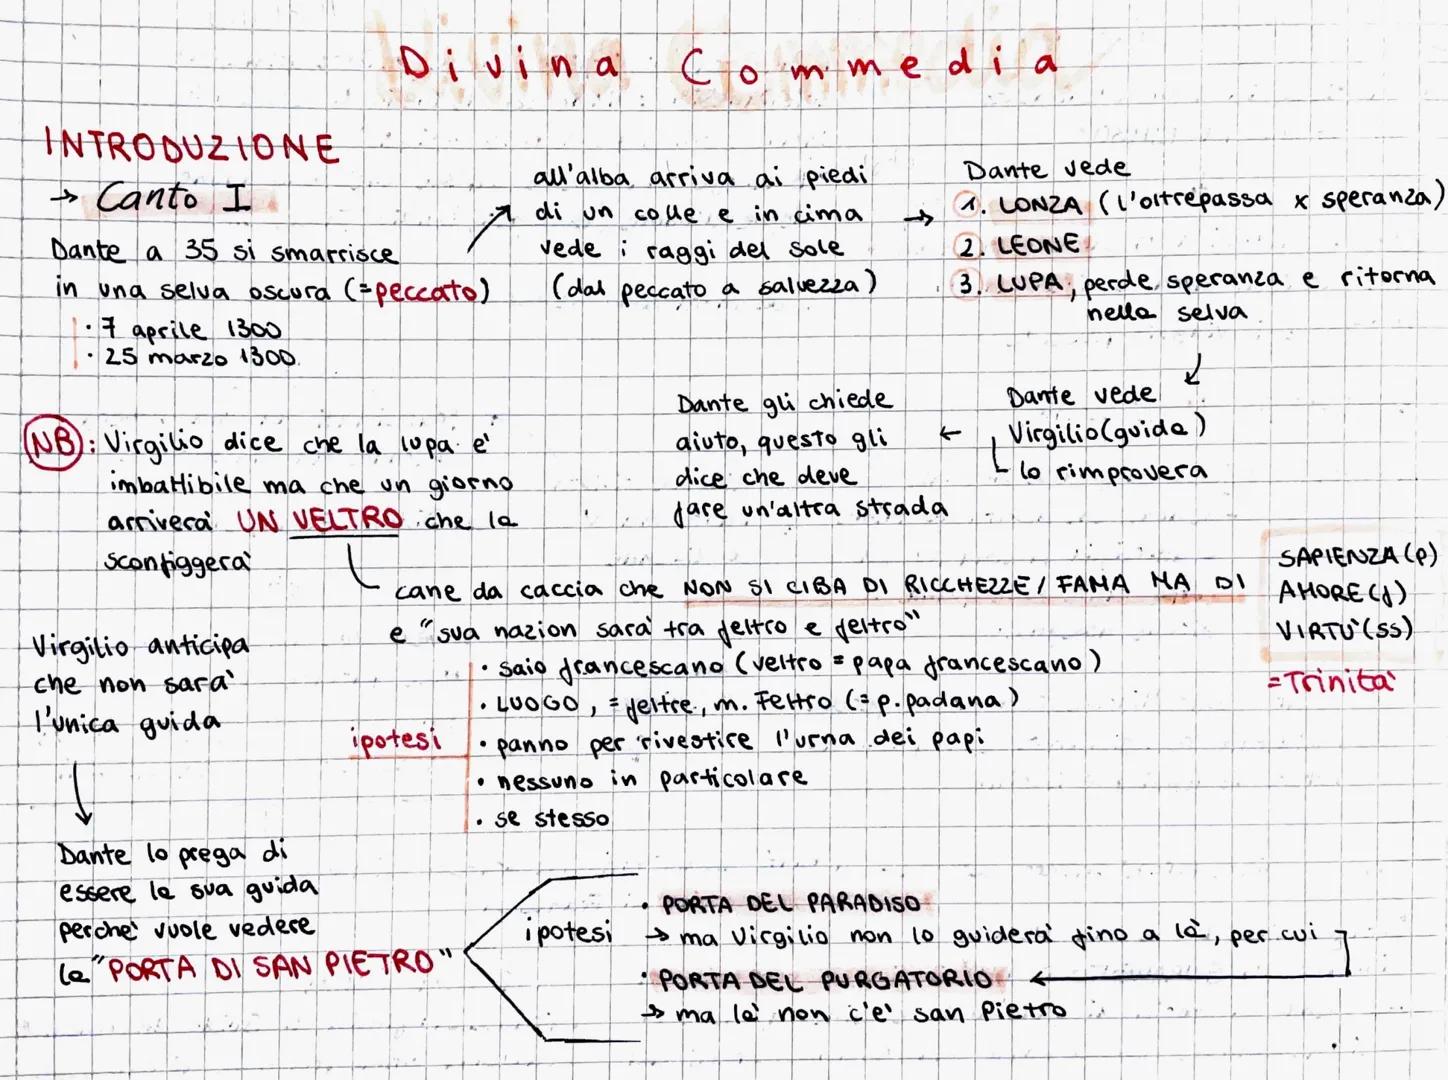 Divina Commedia
INTRODUZIONE
→ Canto I
Dante a 35 si smarrisce
in una selva oscura (=peccato)
· 7 aprile 1300
· 25 marzo 1300
all'alba arriva ai piedi
di un colle e in cima
vede i raggi del sole
(dal peccato a salvezza)
Dante vede
1. LONZA (l'oltrepassa x speranza)
2. LEONE
3. LUPA, perde speranza e ritorna
nella selva
Dante vede
Virgilio (guida)
lo rimprovera
Dante gli chiede
aiuto, questo gli
dice che deve
fare un'altra strada
NB: Virgilio dice che la lupa e'
imbattibile ma che un giorno
arriverà UN VELTRO che la
sconfiggerà
cane da caccia che NON SI CIBA DI RICCHEZZE / FAMA MA DI
SAPIENZA (p)
AMORE (f)
VIRTU' (SS)
=Trinità
e "sua nazion sarà tra feltro e feltro"
ipotesi
· saio francescano (veltro = papa francescano)
· LUOGO, = feltre, m. Feltro (= p. padana)
· panno per rivestire l'urna dei papi
· nessuno in particolare
· se stesso
Virgilio anticipa
che non sarà
l'unica guida
Dante lo prega di
essere la sua guida
perche' vuole vedere
la "PORTA DI SAN PIETRO"
ipotesi
· PORTA DEL PARADISO
→ ma Virgilio non lo guiderà fino a là, per cui
· PORTA DEL PURGATORIO
→ ma la' non c'e' san Pietro